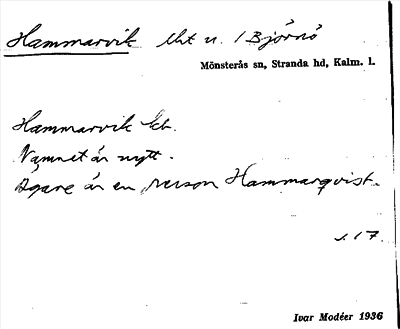 Hammarvik lht u. 1 Björnö
Mönsterås sn, Stranda hd, Kalm. l.
Hammarvik
Namnet är nytt.
Ägare är en person Hammarqvist.
s. 17.
Ivar Modéer 1936